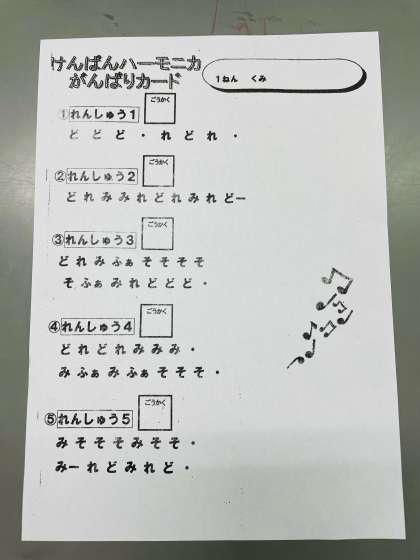 けんばんハーモニカ
がんばりカード
1ねん くみ
①れんしゅう1 ごうかく
ど ど ど ・ れ ど れ ・
②れんしゅう2 ごうかく
ど れ み み れ ど れ み れ どー
③れんしゅう3 ごうかく
ど れ み ふぁ そ そ そ そ
そ ふぁ み れ ど ど ど ・
④れんしゅう4 ごうかく
ど れ ど れ み み み ・
み ふぁ み ふぁ そ そ そ ・
⑤れんしゅう5 ごうかく
み そ そ そ み そ そ ・
みー れ ど み れ ど ・